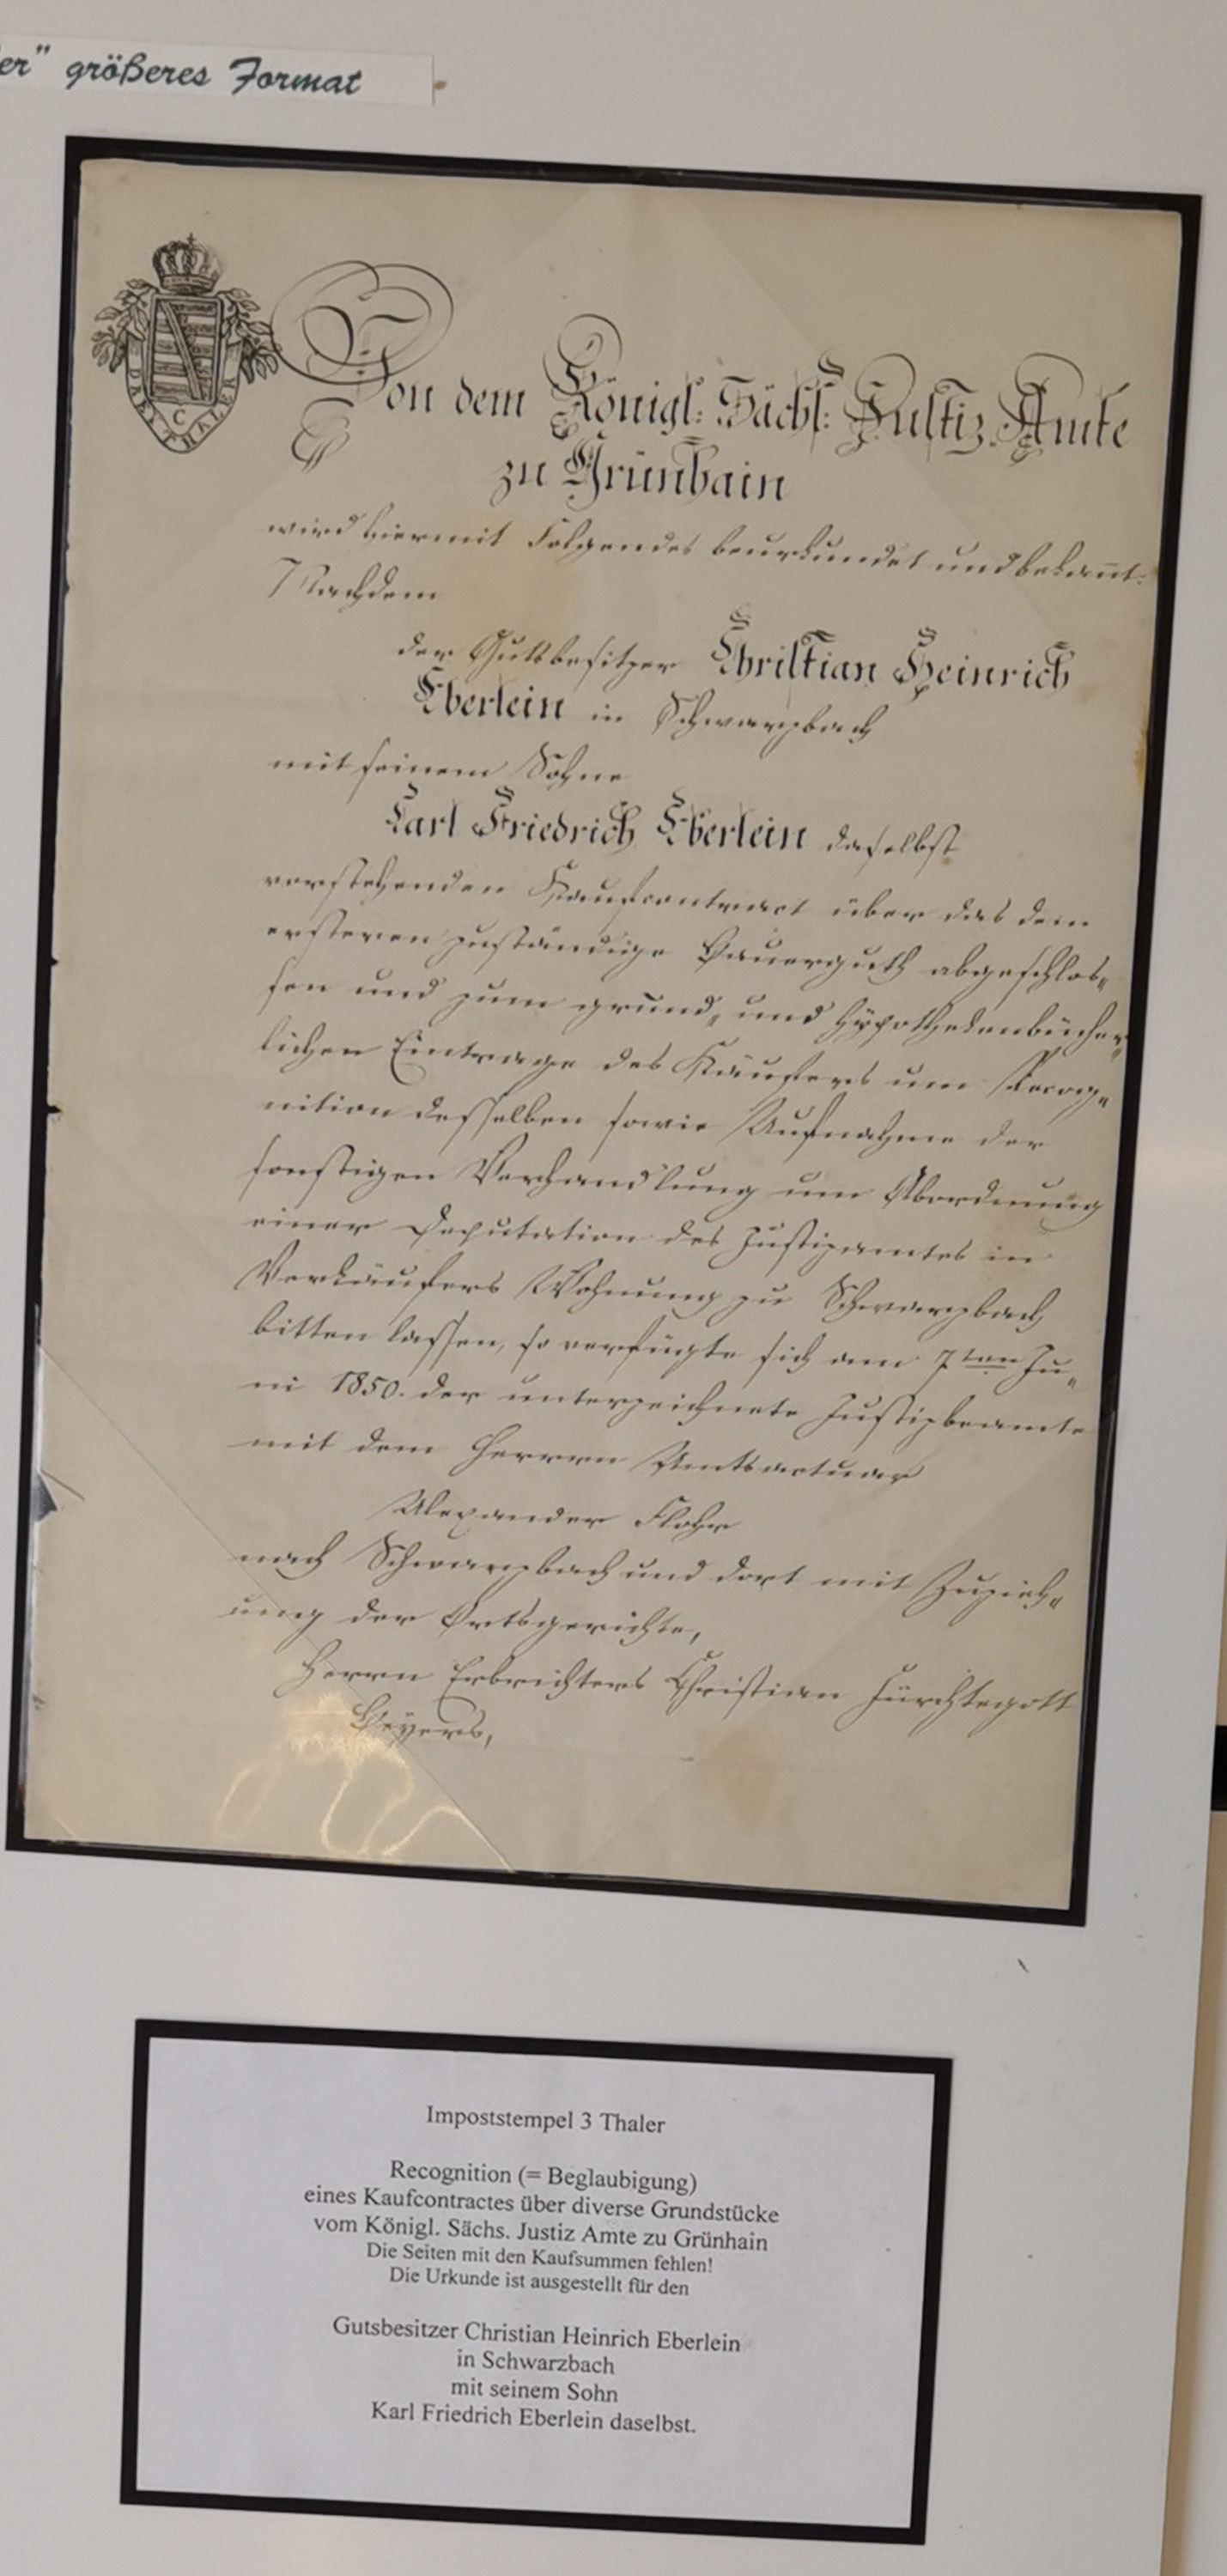 er" größeres Format
DREY THALER
C
Von dem Königl: Sächs: Justiz Amte
zu Grünhain
wird hiermit Folgendes beurkundet und bekannt:
Nachdem
der Gutsbesitzer Christian Heinrich
Eberlein in Schwarzbach
mit seinem Sohne
Carl Friedrich Eberlein daselbst
vorstehenden Kaufcontract über das dem
ersteren zuständige Bauerguth abgeschlos„
sen und zum grund„ und hypothekenbücher„
lichen Eintrage des Käufers um Recog„
nition desselben sowie Aufnahme der
sonstigen Verhandlung um Abordnung
einer Deputation des Justizamtes in
Verkäufers Wohnung zu Schwarzbach
bitten lassen, so verfügte sich am 7ten Ju„
ni 1850. der unterzeichnete Justizbeamte
mit dem Herrn Amtsactuar
Alexander Flohr
nach Schwarzbach und dort mit Zuzieh„
ung der Ortsgerichte,
Herrn Erbrichters Christian Fürchtegott
Beyers,
Impoststempel 3 Thaler
Recognition (= Beglaubigung)
eines Kaufcontractes über diverse Grundstücke
vom Königl. Sächs. Justiz Amte zu Grünhain
Die Seiten mit den Kaufsummen fehlen!
Die Urkunde ist ausgestellt für den
Gutsbesitzer Christian Heinrich Eberlein
in Schwarzbach
mit seinem Sohn
Karl Friedrich Eberlein daselbst.